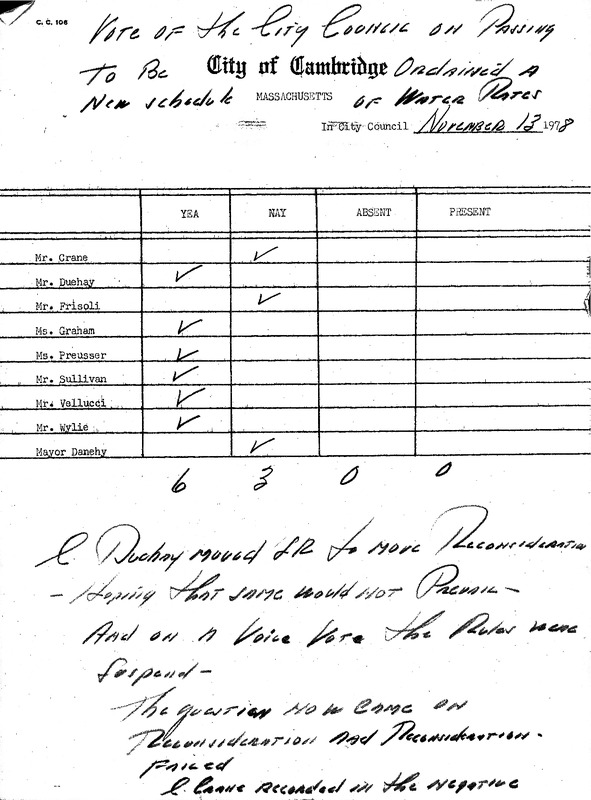 C. C. 106
Vote of the City Council on Passing
To Be City of Cambridge Ordained A
New schedule MASSACHUSETTS of Water Rates
In City Council November 13 1978
YEA NAY ABSENT PRESENT
Mr. Crane ✓
Mr. Duehay ✓
Mr. Frisoli ✓
Ms. Graham ✓
Ms. Preusser ✓
Mr. Sullivan ✓
Mr. Vellucci ✓
Mr. Wylie ✓
Mayor Danehy ✓
6 3 0 0
C. Duehay moved SR to move Reconsideration
- Hoping that same would not Prevail -
And on A Voice Vote the Rules were
suspend -
The question now came on
Reconsideration and Reconsideration -
Failed
C. Crane recorded in the negative